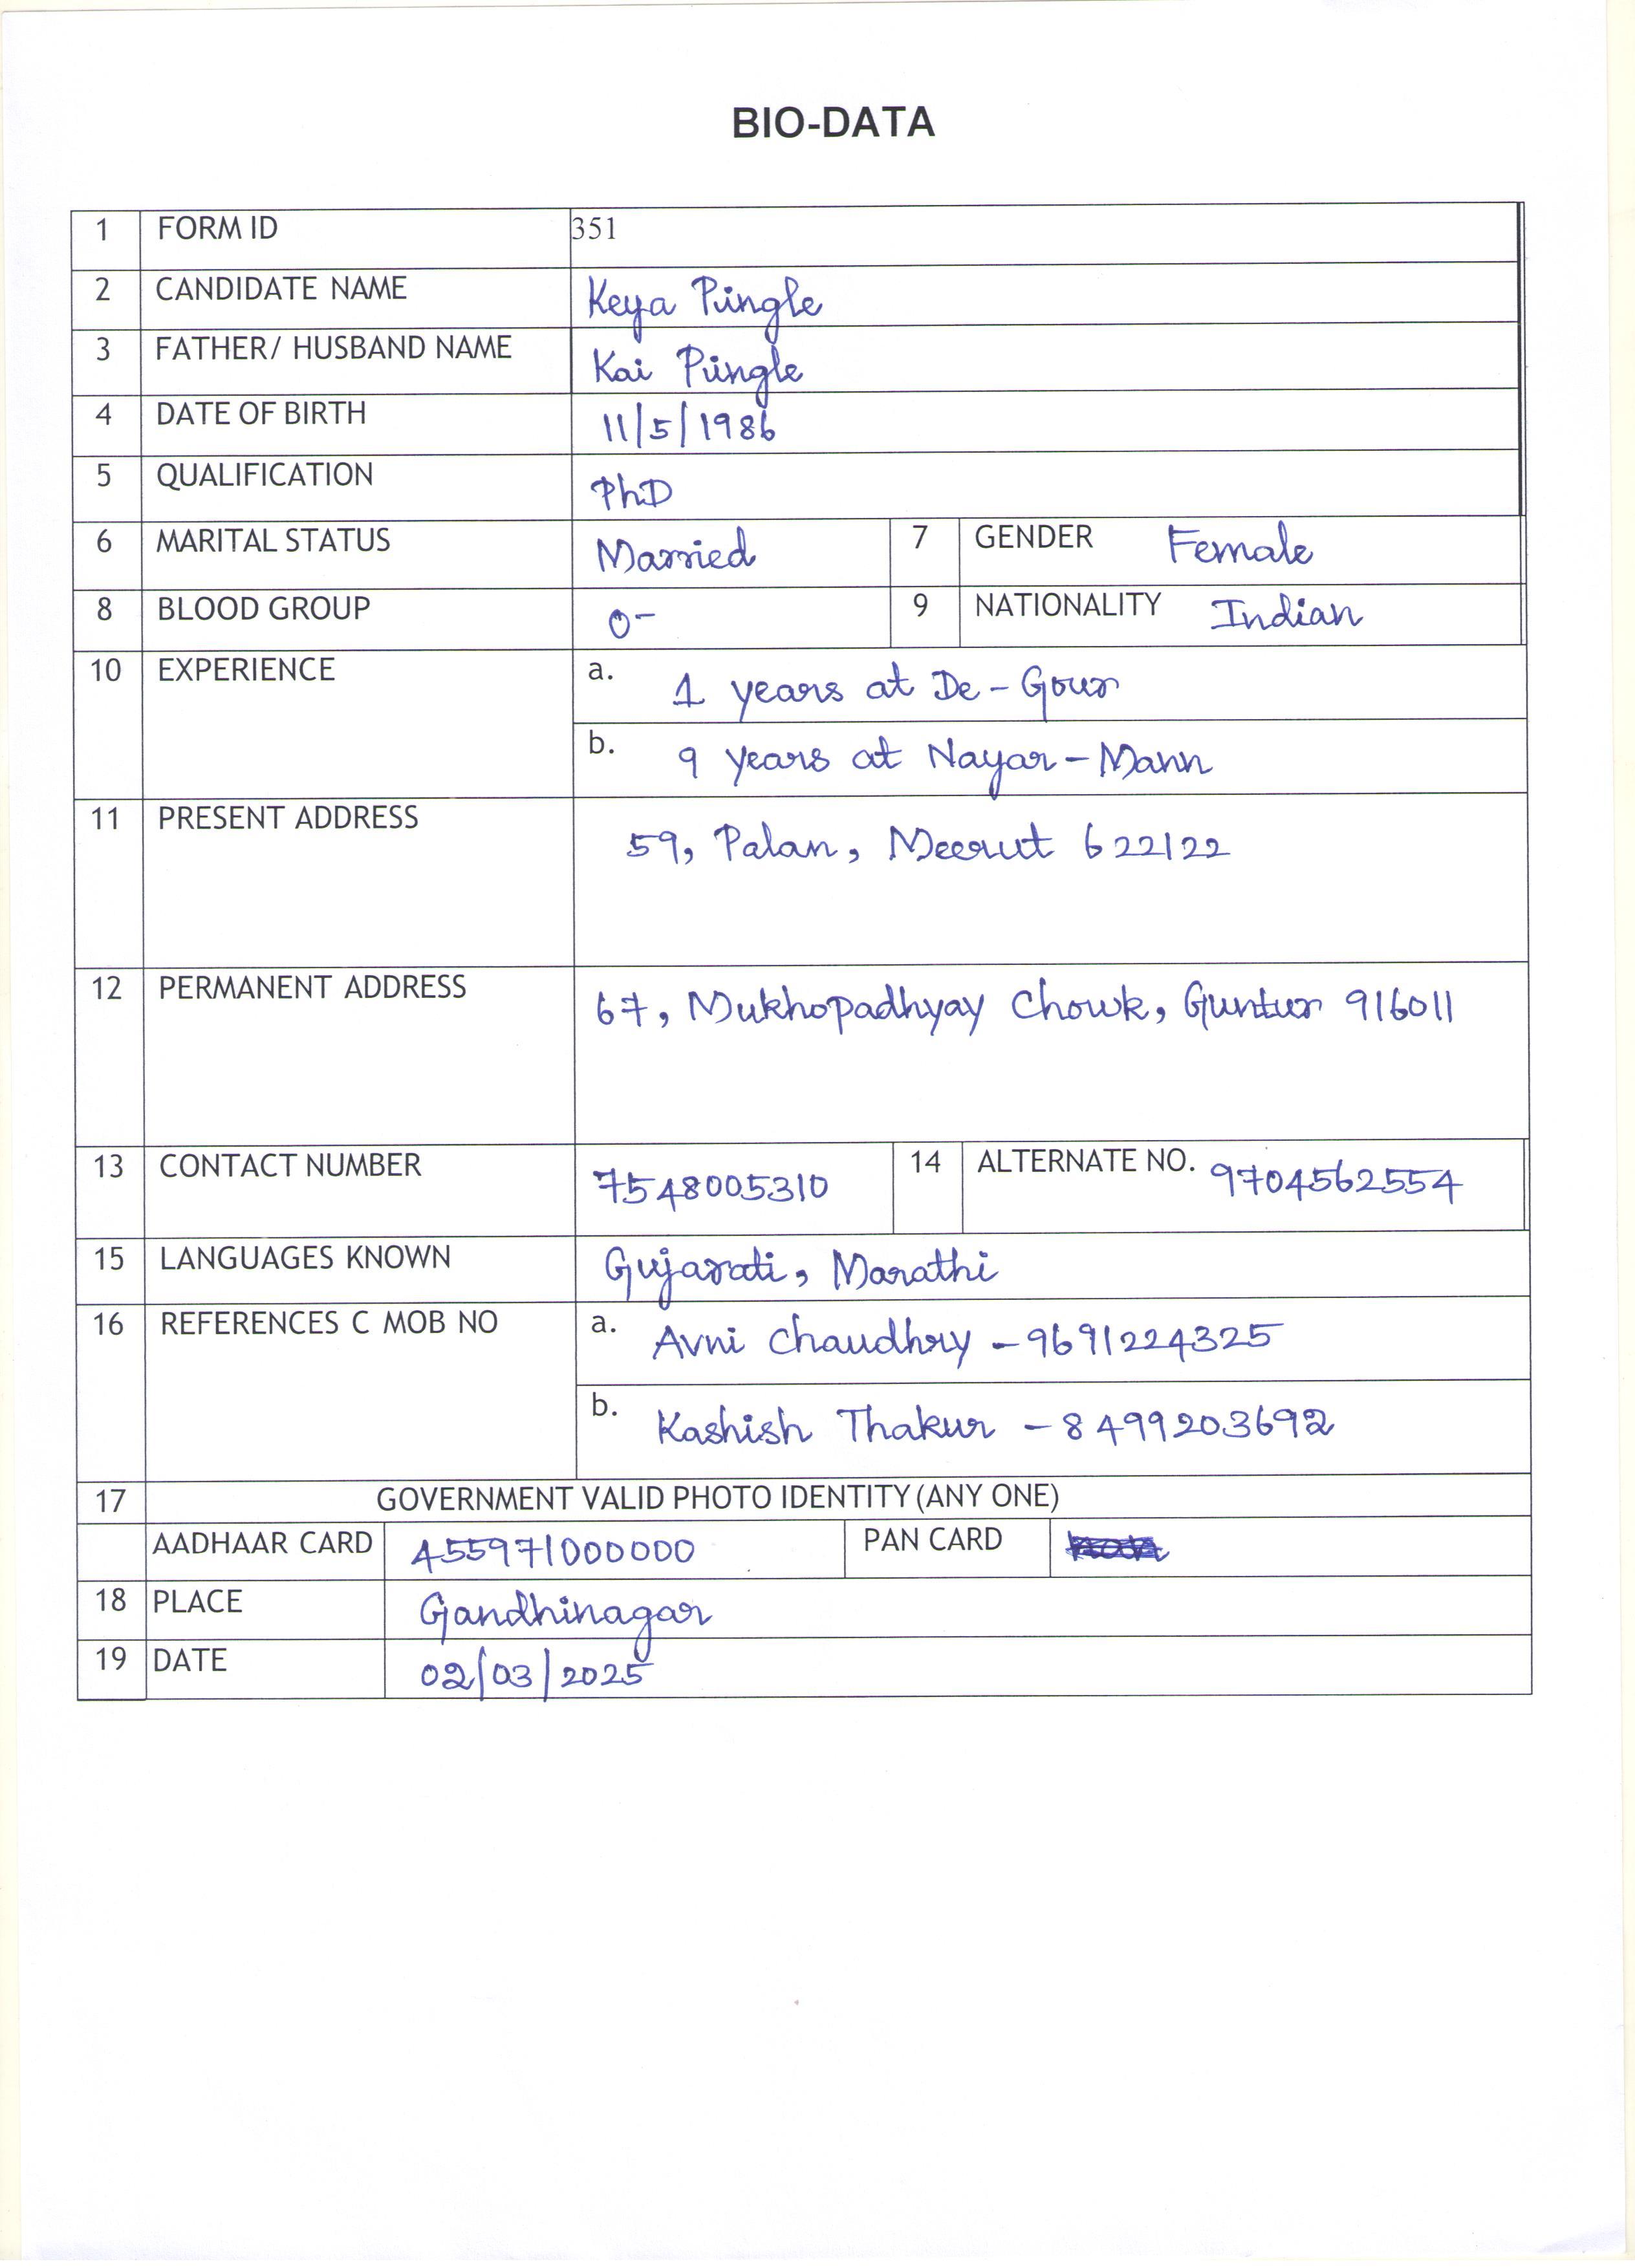 BIO-DATA
1 FORM ID 351
2 CANDIDATE NAME Keya Pingle
3 FATHER/ HUSBAND NAME Kai Pingle
4 DATE OF BIRTH 11/5/1986
5 QUALIFICATION PhD
6 MARITAL STATUS Married 7 GENDER Female
8 BLOOD GROUP O- 9 NATIONALITY Indian
10 EXPERIENCE a. 1 years at De-Gour
b. 9 years at Nayar-Mann
11 PRESENT ADDRESS 59, Palan, Meerut 622122
12 PERMANENT ADDRESS 67, Mukhopadhyay Chowk, Guntur 916011
13 CONTACT NUMBER 7548005310 14 ALTERNATE NO. 9704562554
15 LANGUAGES KNOWN Gujarati, Marathi
16 REFERENCES C MOB NO a. Avni Chaudhry - 9691224325
b. Kashish Thakur - 8499203692
17 GOVERNMENT VALID PHOTO IDENTITY (ANY ONE)
AADHAAR CARD 455971000000 PAN CARD
18 PLACE Gandhinagar
19 DATE 02/03/2025